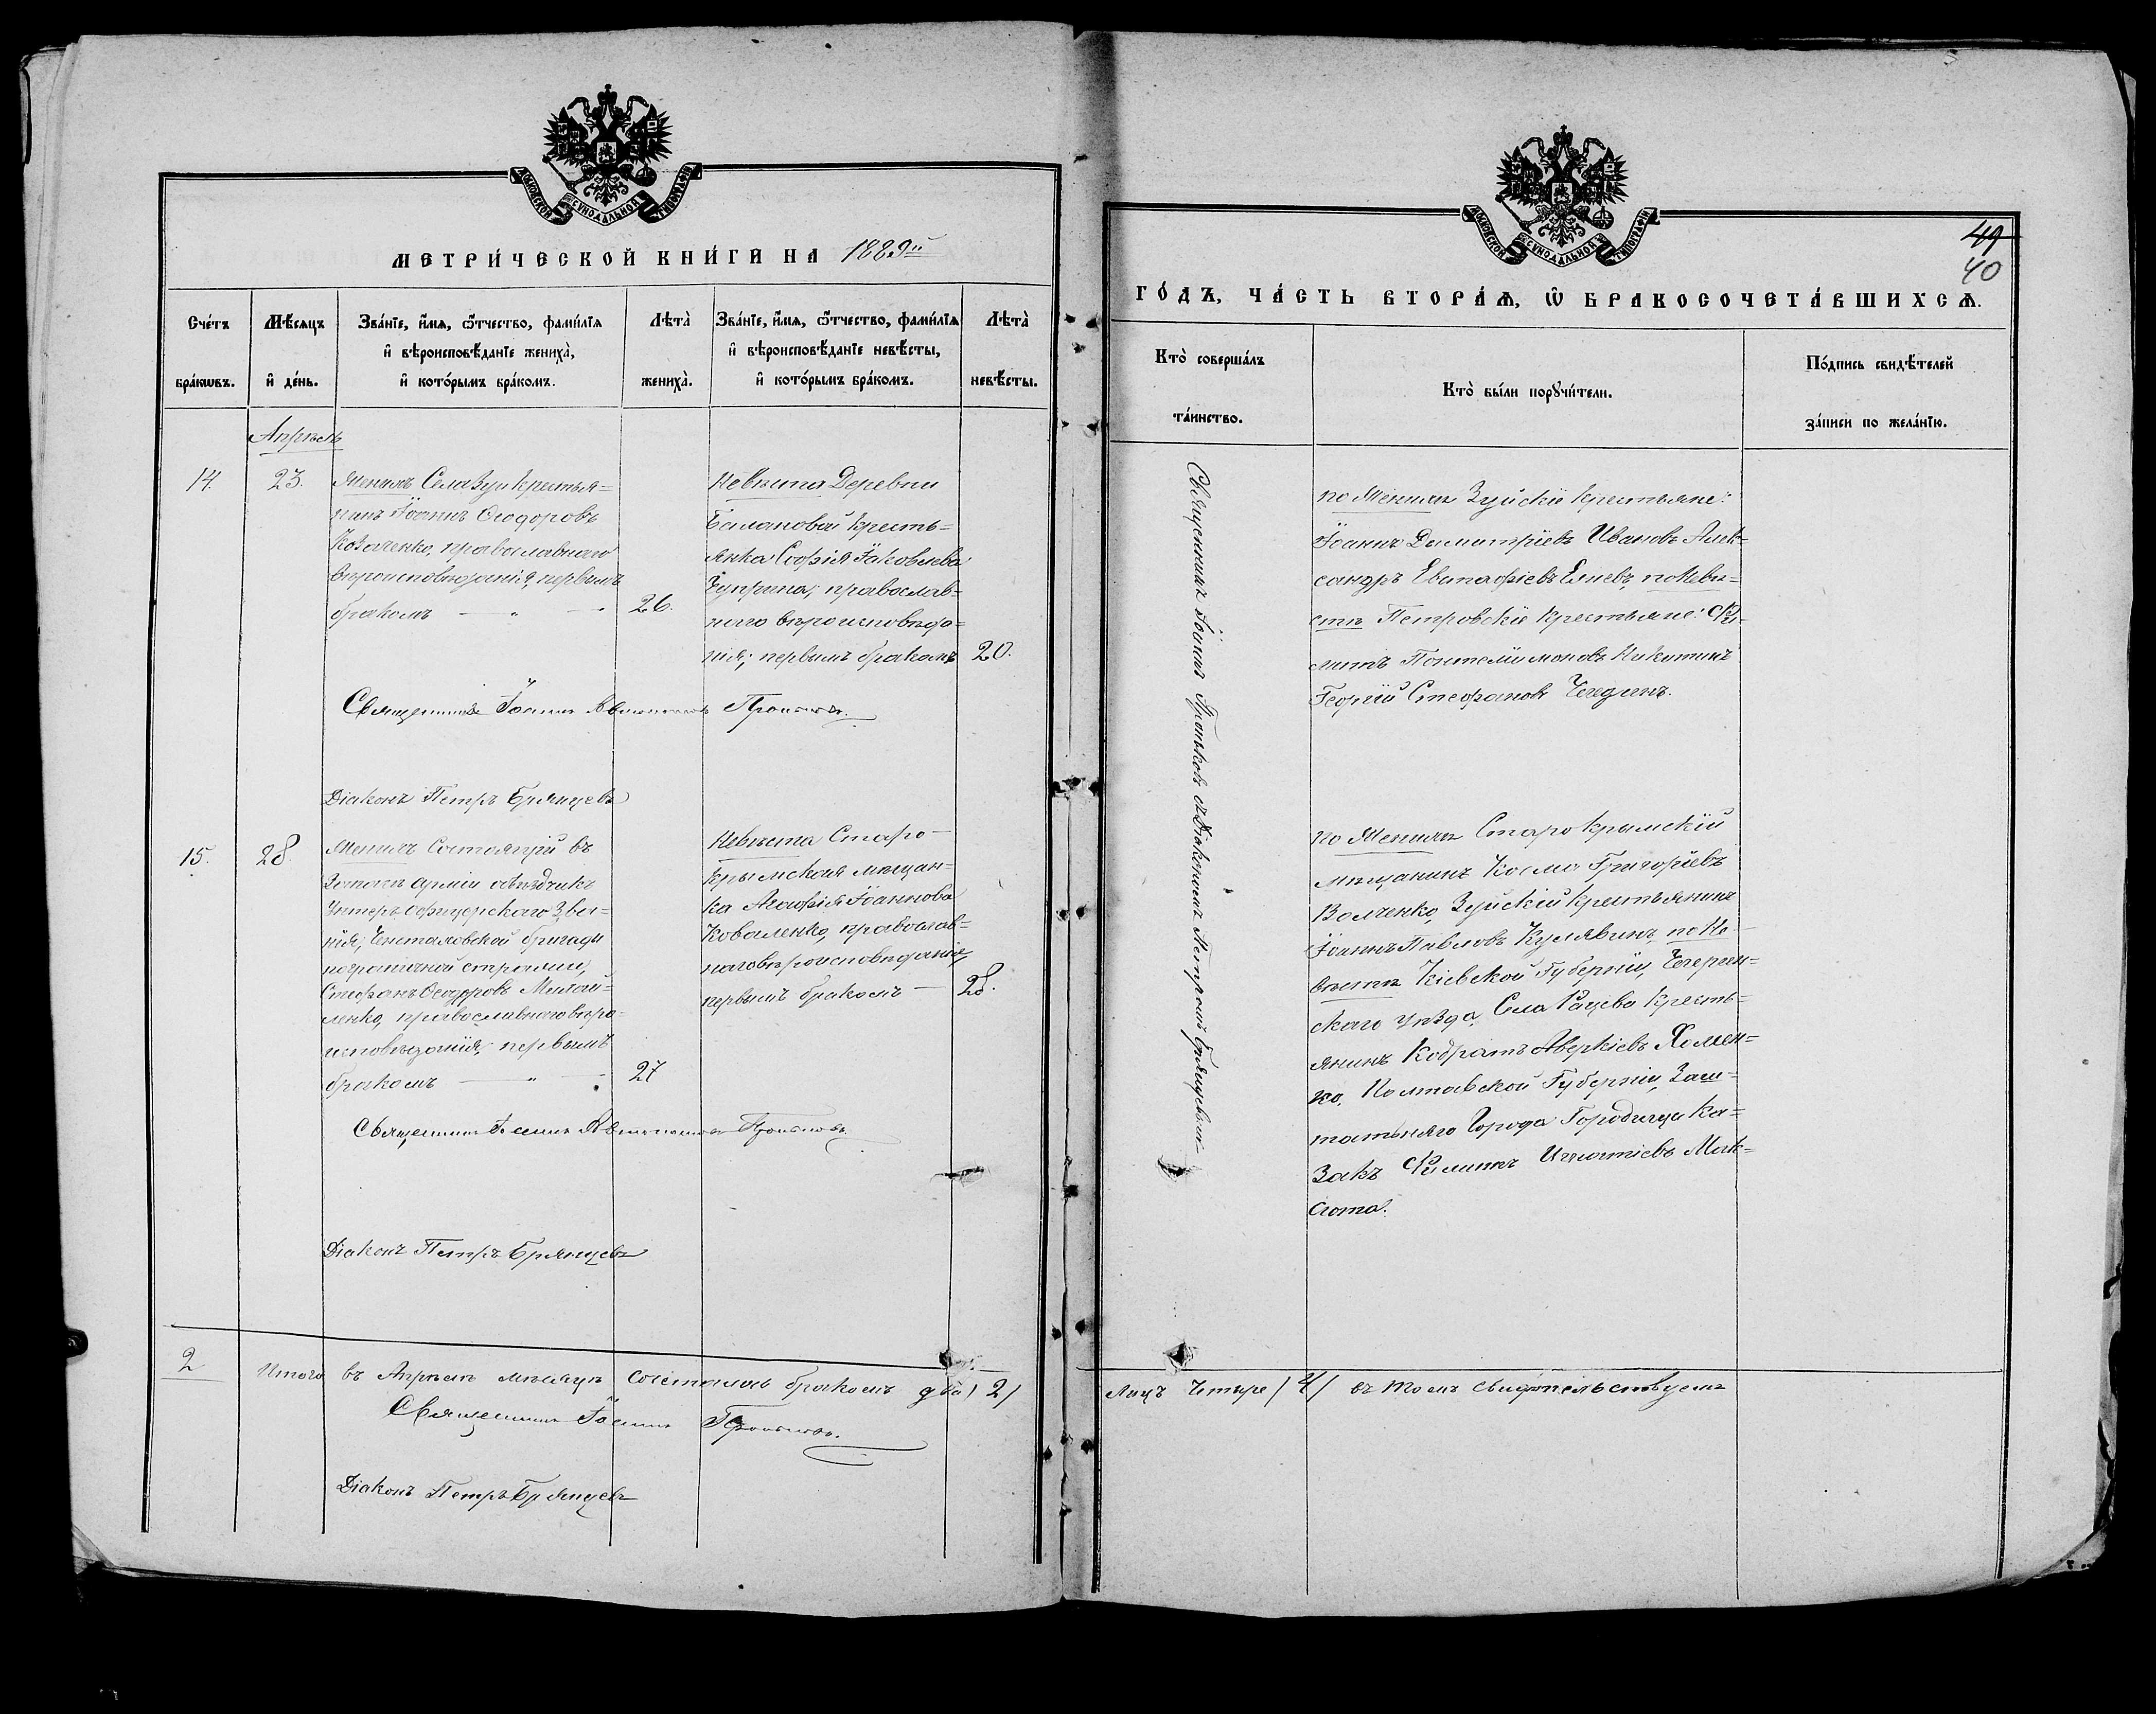 МОСКОВСКОЙ СУНОДАЛЬНОЙ ТИПОГРАФІИ
МЕТРИ́ЧЕСКОЙ КНИ́ГИ НА 1889й
Сче́тъ бра́кѡвъ.
Мѣ́сяцъ и҆ де́нь.
Зва́нїе, и҆́мя, ѻ҆́тчество, фами́лїя
и҆ вѣроисповѣ́данїе жениха̀,
и҆ кото́рымъ бра́комъ.
Лѣта̀ жениха̀.
Зва́нїе, и҆́мя, ѻ҆́тчество, фами́лїя
и҆ вѣроисповѣ́данїе невѣ́сты,
и҆ кото́рымъ бра́комъ.
Лѣта̀ невѣ́сты.
Апрѣль
14.
23.
Женихъ Села Зуи крестья=
нинъ Іоаннъ Ѳеодоровъ
Козаченко, православнаго
вѣроисповѣданія, первымъ
бракомъ — „ —
26.
Невѣста Деревни
Балановой кресть=
янка Софія Іаковлева
Чуприна, православ=
наго вѣроисповѣда=
нія, первымъ бракомъ
20.
Священникъ Іоаннъ
Діаконъ Петръ Брянцевъ
15.
28.
Женихъ Состоящій въ
Запасѣ арміи объѣздчикъ
Унтеръ офицерскаго Зва=
нія, бригады
пограничной стражи,
Стефанъ Ѳеодоровъ Михай=
ленко, православнаго вѣро=
исповѣданія, первымъ
бракомъ — „ —
27
Невѣста Старо-
крымская мѣщан=
ка Агафія Іоаннова
Коваленко, православ=
наго вѣроисповѣданія,
первымъ бракомъ —
28.
Священникъ Іоаннъ
Діаконъ Петръ Брянцевъ
2
Итого въ Апрѣлѣ мѣсяцѣ бракомъ два / 2 /
Священникъ Іоаннъ
Діаконъ Петръ Брянцевъ
МОСКОВСКОЙ СУНОДАЛЬНОЙ ТИПОГРАФІИ
40
ГО́ДЪ, ЧА́СТЬ ВТОРА́Ѧ, Ѡ҆ БРАКОСОЧЕТА́ВШИХСѦ.
Кто̀ соверша́лъ
та́инство.
Кто̀ бы́ли порꙋчи́тели.
По́дпись свидѣ́телей
за́писи по жела́нїю.
Священникъ Іоаннъ съ Діакономъ Петромъ Брянцевымъ
по Женихѣ Зуйскіе крестьяне:
Іоаннъ Димитріевъ Ивановъ Алек=
сандръ Евстафіевъ по Невѣ=
стѣ Петровскіе крестьяне: Фи=
липъ Пантелимоновъ Никитинъ
Георгій Стефановъ
по Женихѣ Старокрымскій
мѣщанинъ Косма Григоріевъ
Волченко, Зуйскій крестьянинъ
Іоаннъ Павловъ Кулявинъ, по Не-
вѣстѣ Кіевской Губерніи, Чигрин=
скаго уѣзда, Села Рацева кресть=
янинъ Кодратъ Аверкіевъ Хомен=
ко, Полтавской Губерніи, Заш=
татнаго Города Городища Ка=
закъ Филиппъ Игнатіевъ Мак=
сюта.
Лицъ Четыре / 4 / въ томъ свидѣтельствуемъ